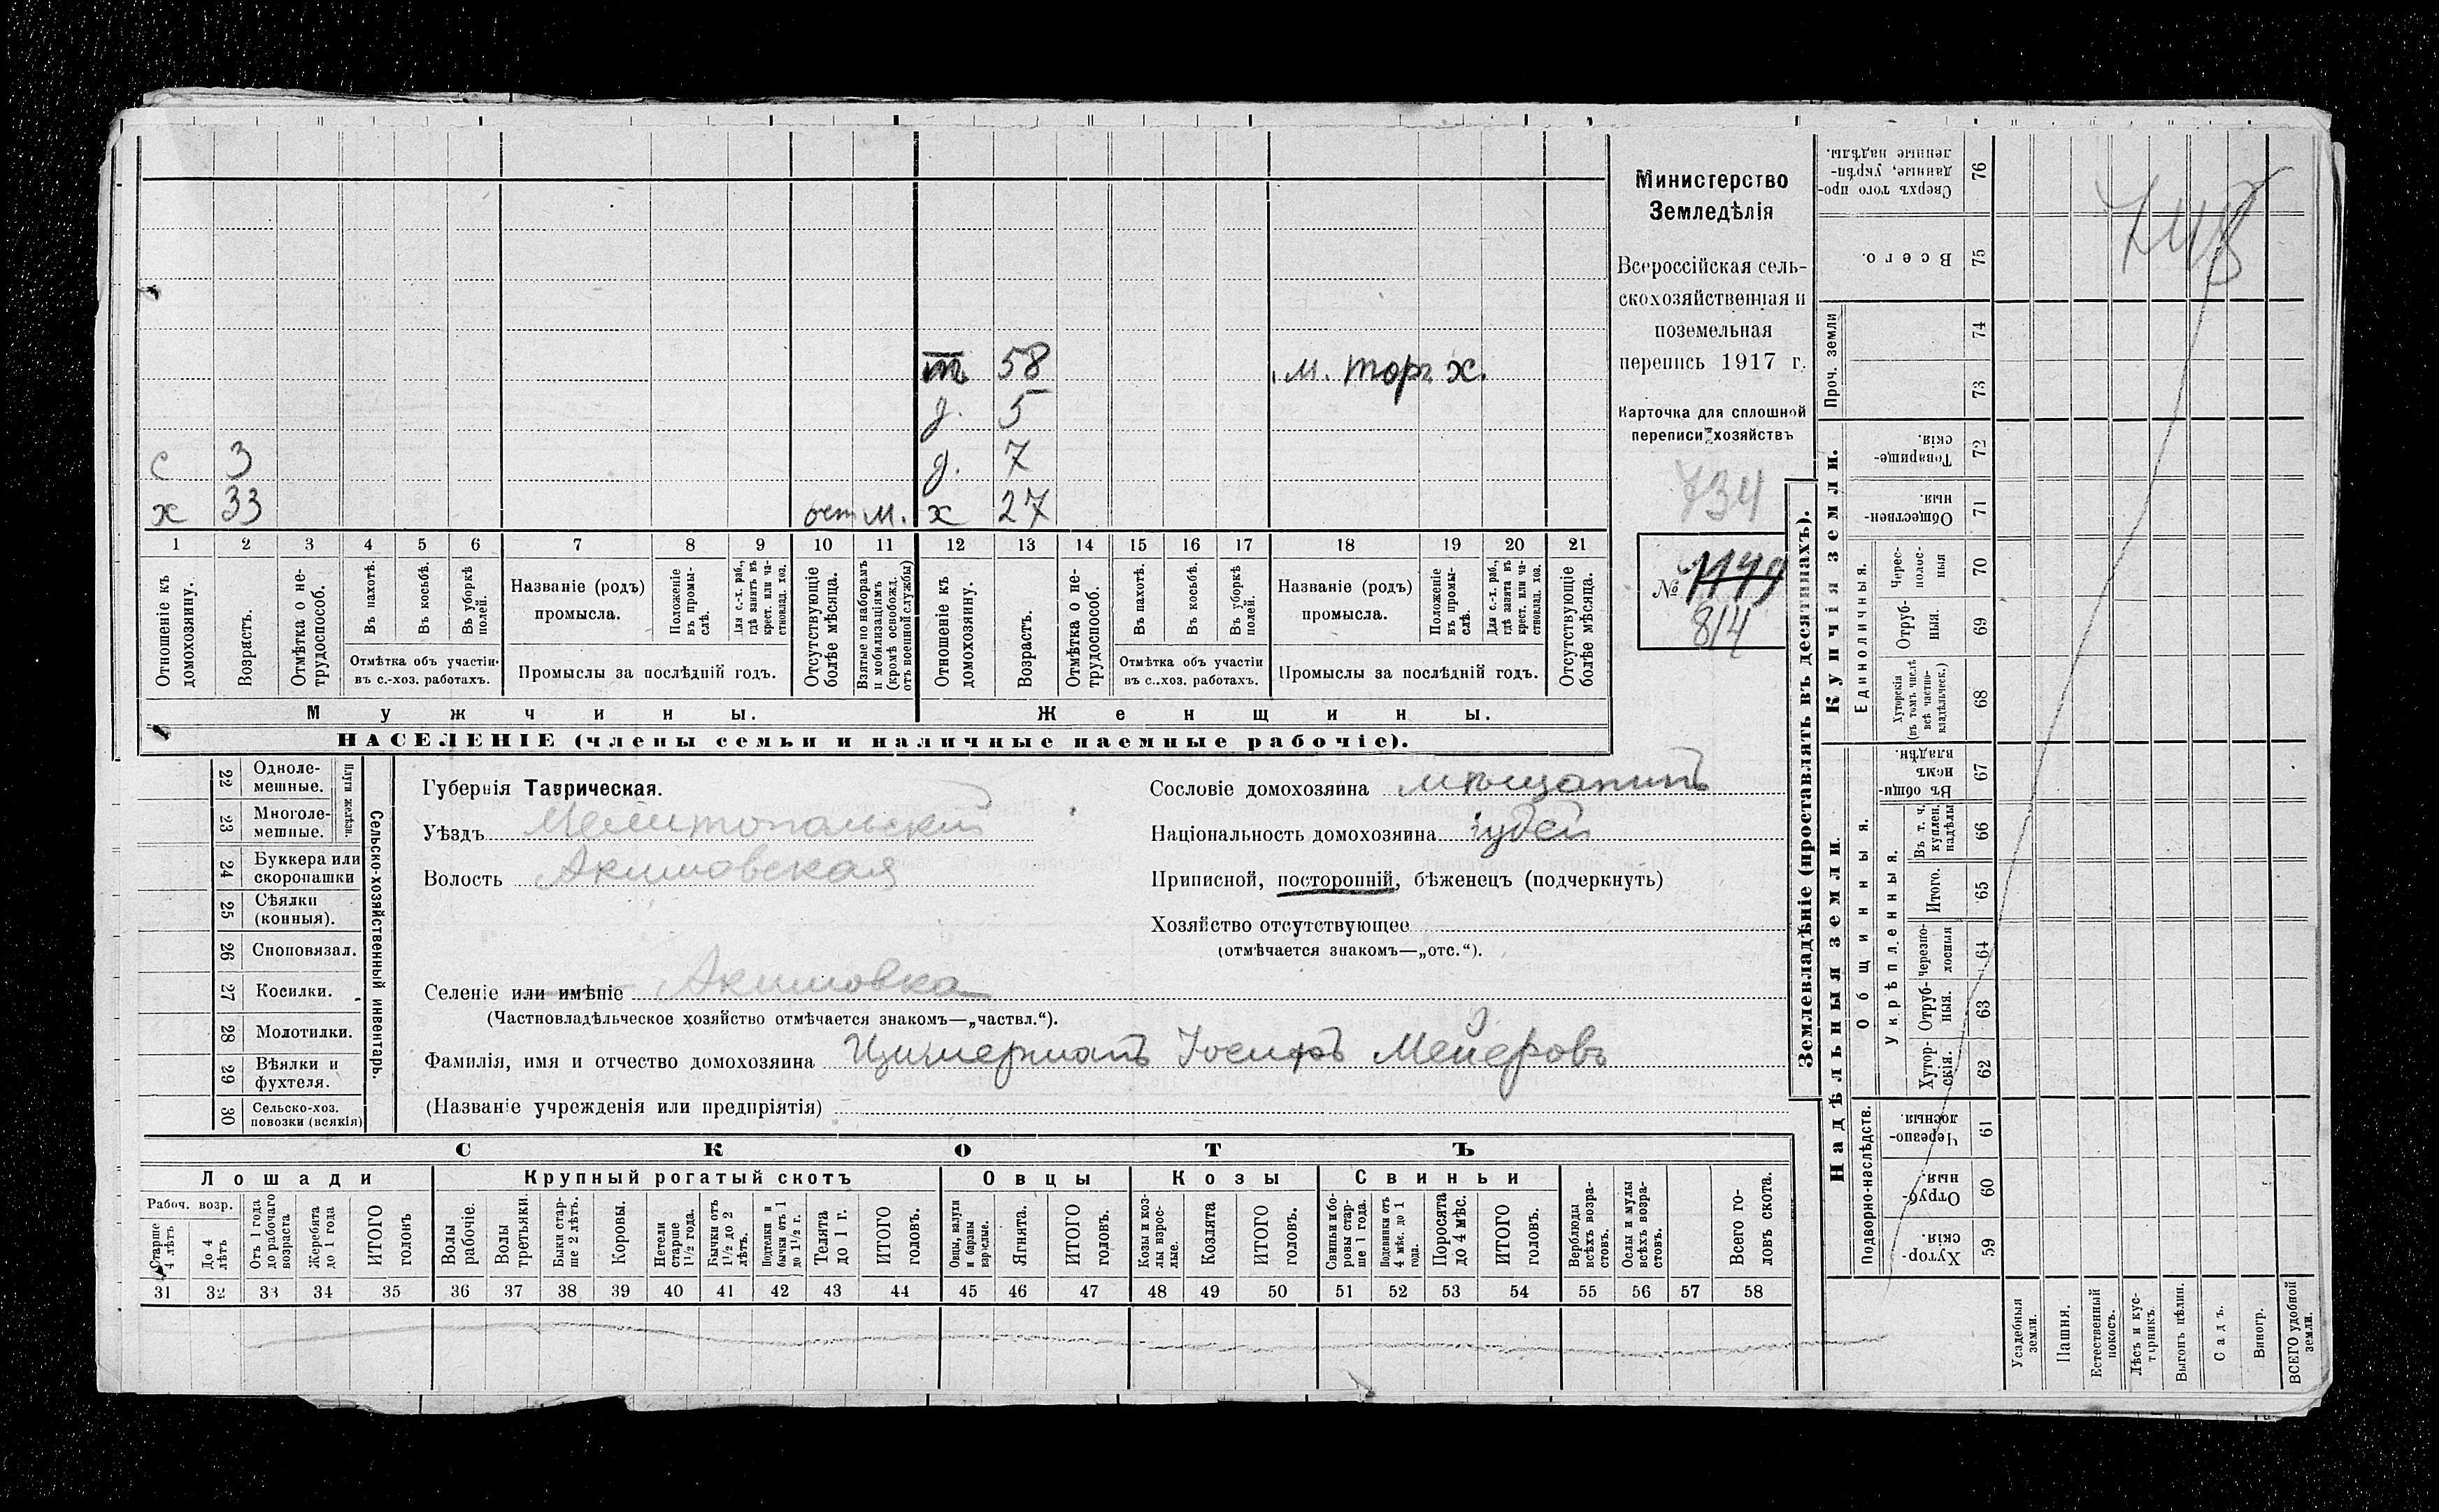 Министерство
Земледѣлія
Всероссійская сель-
скохозяйственная и
поземельная
перепись 1917 г.
Карточка для сплошной
переписи хозяйствъ
734
№ 1149
814
т 58 м. торг. х.
д. 5
с 3 д. 7
х 33 м. х 27
1 2 3 4 5 6 7 8 9 10 11 12 13 14 15 16 17 18 19 20 21
Отношеніе къ домохозяину.
Возрастъ.
Отмѣтка о не-трудоспособ.
Въ пахотѣ.
Въ косьбѣ.
Въ уборкѣ полей.
Отмѣтка объ участіи въ с.-хоз. работахъ.
Названіе (родъ) промысла.
Положеніе въ промы-слѣ.
Для с.-х. раб., гдѣ занятъ въ крест. или ча-стновлад. хоз.
Промыслы за послѣдній годъ.
Отсутствующіе болѣе мѣсяца.
Взятые по наборамъ и мобилизаціямъ (кромѣ освобожд. отъ военной службы)
Отношеніе къ домохозяину.
Возрастъ.
Отмѣтка о не-трудоспособ.
Въ пахотѣ.
Въ косьбѣ.
Въ уборкѣ полей.
Отмѣтка объ участіи въ с..хоз. работахъ.
Названіе (родъ) промысла.
Положеніе въ промы-слѣ.
Для с.-х. раб., гдѣ занята въ крест. или ча-стновлад. хоз.
Промыслы за послѣдній годъ.
Отсутствующіе болѣе мѣсяца.
Мужчины.
Женщины.
НАСЕЛЕНІЕ (члены семьи и наличные наемные рабочіе).
22 Одноле-мешные.
23 Многоле-мешные.
Плуги желѣзн.
24 Буккера или скоропашки
25 Сѣялки (конныя).
26 Сноповязал.
27 Косилки.
28 Молотилки.
29 Вѣялки и фухтеля.
30 Сельско-хоз. повозки (всякія)
Сельско-хозяйственный инвентарь.
Губернія Таврическая.
Уѣздъ Мелитопольскій
Волость Акимовская
Селеніе или имѣніе Акимовка
(Частновладѣльческое хозяйство отмѣчается знакомъ—„частвл.“).
Фамилія, имя и отчество домохозяина Цимерманъ Іосифъ Мейеровъ
(Названіе учрежденія или предпріятія)
Сословіе домохозяина мѣщанинъ
Національность домохозяина іудей
Приписной, посторонній, бѣженецъ (подчеркнуть)
Хозяйство отсутствующее
(отмѣчается знакомъ—„отс.“).
СКОТЪ
Лошади
Крупный рогатый скотъ
Овцы
Козы
Свиньи
Рабоч. возр.
Старше 4 лѣтъ
До 4 лѣтъ
Отъ 1 года до рабочаго возраста
Жеребята до 1 года
ИТОГО головъ
Волы рабочіе.
Волы третьяки.
Быки стар-ше 2 лѣтъ.
Коровы.
Нетели старше 1½ года.
Бычки отъ 1½ до 2 лѣтъ.
Подтелки и бычки отъ 1 до 1½ г.
Телята до 1 г.
ИТОГО головъ.
Овцы, валухи и бараны взрослые.
Ягнята.
ИТОГО головъ.
Козы и коз-лы взрос-лые.
Козлята
ИТОГО головъ.
Свиньи и бо-ровы стар-ше 1 года.
Подсвинки отъ 4 мѣс. до 1 года.
Поросята до 4 мѣс.
ИТОГО головъ.
Верблюды всѣхъ возра-стовъ.
Ослы и мулы всѣхъ возра-стовъ.
Всего го-ловъ скота.
31 32 33 34 35 36 37 38 39 40 41 42 43 44 45 46 47 48 49 50 51 52 53 54 55 56 57 58
Землевладѣніе (проставлять въ десятинахъ).
Купчія земли.
Надѣльныя земли
Сверхъ того про-данные, укрѣп-ленные надѣлы. 76
Всего. 75
Проч. земли
74
73
Товарище-скія. 72
Обществен-ныя. 71
Единоличныя.
Черес-полос-ныя 70
Отруб-ныя. 69
Хуторскія (въ томъ числѣ всѣ частно-владѣльческ.) 68
Общинныя.
Въ общин-номъ владѣн. 67
Укрѣпленныя.
Въ т. ч. куплен. надѣлы 66
Итого. 65
Черезпо-лосныя 64
Отруб-ныя. 63
Хутор-скія. 62
Подворно-наслѣдств.
Черезпо-лосныя 61
Отруб-ныя. 60
Хутор-скія. 59
Усадебныя земли.
Пашня.
Естественный покосъ.
Лѣсъ и кус-тарникъ.
Выгонъ цѣлин.
Садъ.
Виногр.
ВСЕГО удобной земли.